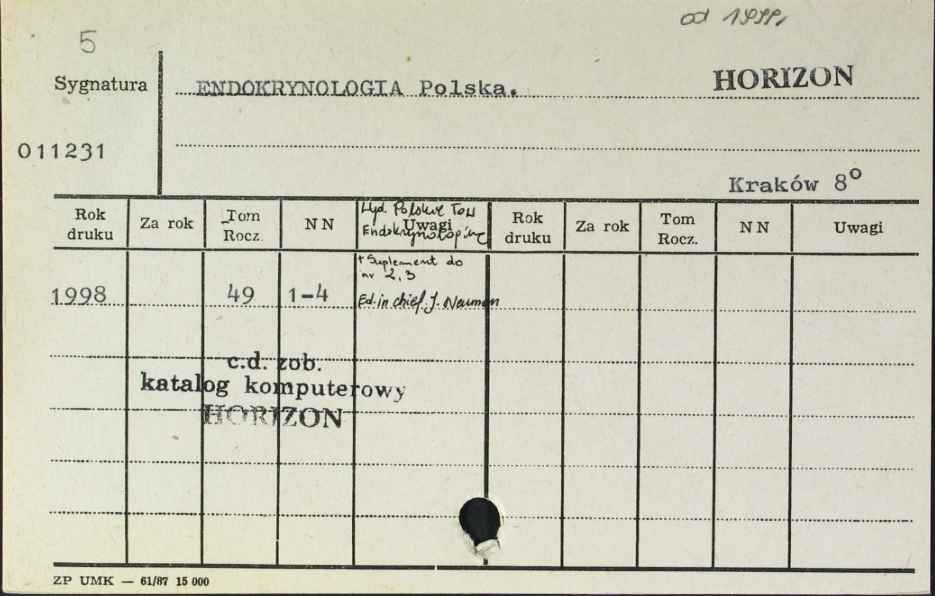 od 1999,
5
Sygnatura
ENDOKRYNOLOGIA Polska.
HORIZON
011231
Kraków 8°
Rok druku
Za rok
Tom Rocz.
NN
Wyd. Polskie Tow
Endokrynologiczne
Uwagi
Rok druku
Za rok
Tom Rocz.
NN
Uwagi
+ Suplement do
nr 2,3
1998
49
1-4
Ed. in chief. J. Nauman
c.d. zob.
katalog komputerowy
HORIZON
ZP UMK — 61/87 15 000